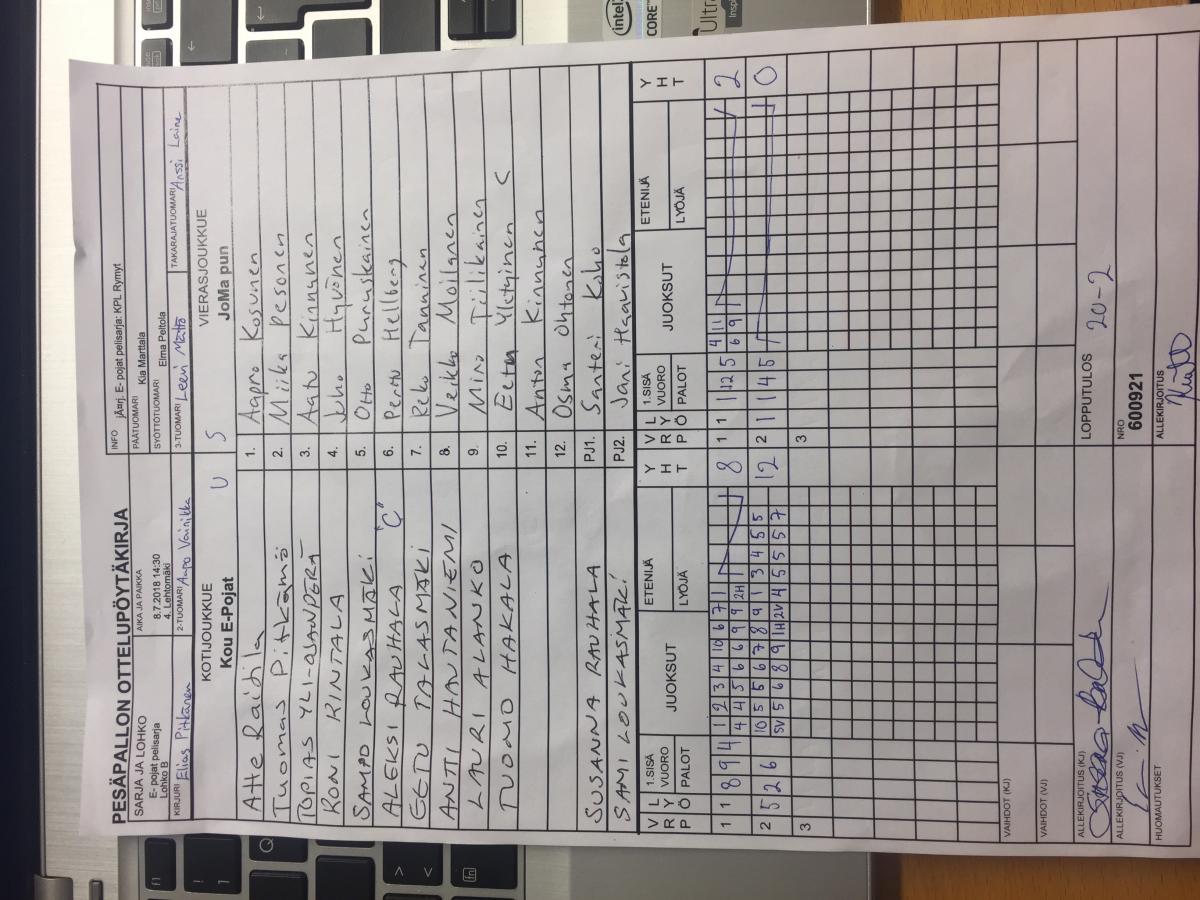 PESÄPALLON OTTELUPÖYTÄKIRJA
INFO jÄ¤rj. E- pojat pelisarja: KPL Rymyt
SARJA JA LOHKO
E- pojat pelisarja
Lohko B
AIKA JA PAIKKA
8.7.2018 14:30
4. Lehtomäki
PÄÄTUOMARI Kia Marttala
SYÖTTÖTUOMARI Elma Peltola
KIRJURI Elias Pitkänen
2-TUOMARI Aapo Vainikka
3-TUOMARI Leevi Mättö
TAKARAJATUOMARI Anssi Laine
KOTIJOUKKUE
Kou E-Pojat
U
S
VIERASJOUKKUE
JoMa pun
Atte Raitila 1. Aapro Kosunen
Tuomas Pitkämö 2. Miika Pesonen
TOPIAS YLI-OJANPERÄ 3. Aatu Kinnunen
RONI RINTALA 4. Juho Hyvönen
SAMPO LOUKASMÄKI 5. Otto Puruskainen
ALEKSI RAUHALA "C" 6. Perttu Hellberg
EETU TALASMÄKI 7. Reko Tanninen
ANTTI HAUTANIEMI 8. Veikko Moilanen
LAURI ALANKO 9. Miro Tiilikainen
TUOMO HAKALA 10. Eetu Yletyinen C
11. Anton Kinnunen
12. Osma Ohtonen
SUSANNA RAUHALA PJ1. Santeri Koho
SAMI LOUKASMÄKI PJ2. Jani Haaristola
V R P L Y Ö 1.SISÄ VUORO PALOT JUOKSUT ETENIJÄ LYÖJÄ Y H T V R P L Y Ö 1.SISÄ VUORO PALOT JUOKSUT ETENIJÄ LYÖJÄ Y H T
1 1 8 9 4 1 2 3 4 10 6 7 1 8 1 1 1 12 5 4 11 2
4 4 5 6 6 9 9 2H 6 9
2 5 2 6 10 5 5 6 7 8 9 1 3 4 5 5 12 2 1 1 4 5 0
5V 5 6 8 9 1H 2V 4 5 5 5 7
3 3
VAIHDOT (KJ)
VAIHDOT (VJ)
ALLEKIRJOITUS (KJ)
LOPPUTULOS 20-2
ALLEKIRJOITUS (VJ)
NRO
600921
HUOMAUTUKSET
ALLEKIRJOITUS
intel
CORE
Ultra
Insp
fn
f1